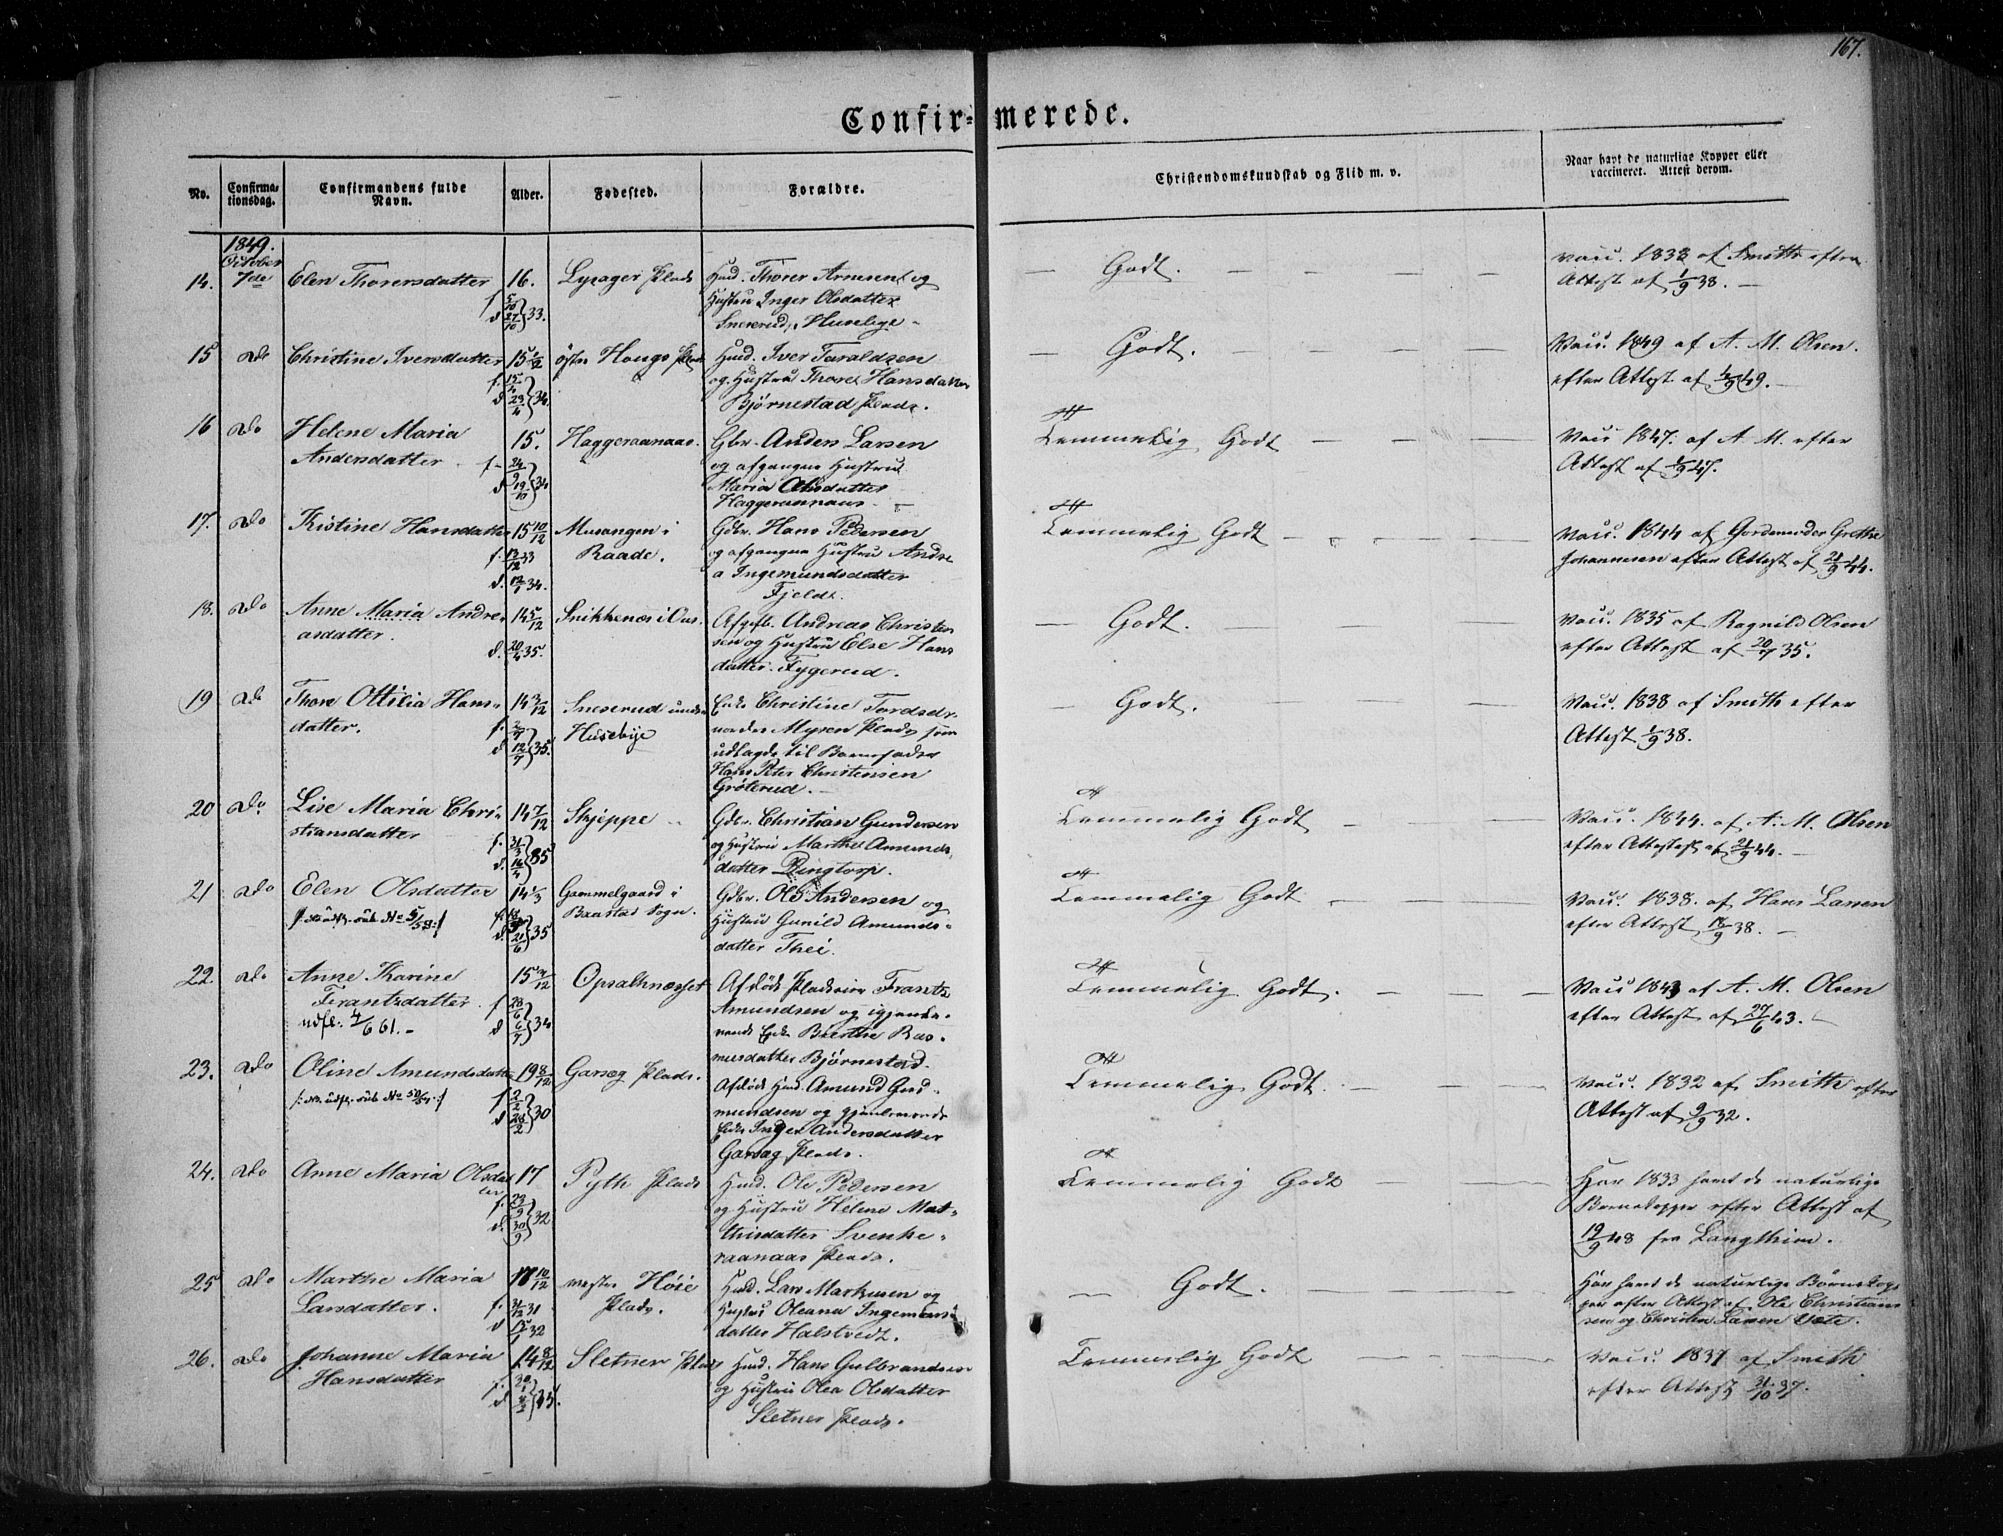 167.
Confirmerede.
No.
Confirma-
tionsdag.
Confirmandens fulde
Navn.
Alder.
Fødested.
Forældre.
Christendomskundskab og Flid m. v.
Naar havt de naturlige Kopper eller
vaccineret. Attest derom.
1849.
October
14. 7de Elen Thorersdatter 16. Lysager Plads
f. 5/10 d. 27/10 } 33.
Husm. Thorer Armunds og
Hustru Inger Olsdatter
Snererud, Huuslige
— Godt. — — — —
Vacc. 1838 af Smith efter
Attest af 1/9 38. —
15 Do Christine Iversdatter 15 5/12 østre Hougs Plads
f. 15/4 d. 23/4 } 34.
Husm. Iver Taraldsen
og Hustru Thore Hansdatter
Bjørnestad Plads.
— Godt. — — — —
Vacc. 1849 af A. M. Olsen.
efter Attest af 49. —
16 Do Helene Maria
Andersdatter 15. Haggeraanaas
f. 24/9 d. 19/10 } 34
Gbr. Anders Larsen
og afgangne Hustru
Maria Olsdatter
Haggeraanaas. —
Temmelig Godt — — — —
Vacc 1847. af A. M. efter
Attest af 1/9 47.
17. Do Kistine Hansdatter 15 10/12 Musangen i
Raade.
f. 12/12 33
d. 12/7 34.
Gdbr. Hans Pedersen
og afgangne Hustru Andre
a Ingemundsdatter
Fjeldt.
Temmelig Godt — — — —
Vacc. 1844 af Gordemoder Grethe
Johannesen efter Attest af 21/9 44.
18. Do Anne Maria Andre
asdatter. 14 5/12 Snikkenæs i Ous.
d. 20/4 35.
Afgifb. Andreas Christen
sen og Hustru Else Hans
datter. Fygerud.
— Godt. — — — —
Vacc. 1835 af Ragnild Olsen
efter Attest af 20/7 35.
19 Do Thore Ottilia Hans-
datter. 14 3/12 Sneserud under
Husebye
f. 2/7 d. 12/7 } 35.
Enke Christine Tordsdr.
Myren Plads som
udlagde til Barnefader
Hans Peter Christensen
Grøterud. —
— Godt. — — — —
Vacc. 1838 af Smith efter
Attest 1/9 38.
20 Do Lise Maria Chri-
stiansdatter 14 7/12 Skjeppe
f. 31/3 d. 16/4 } 35
Gdbr. Christian Gundersen
og Hustru Marthe Amunds
datter Ringtorp.
Temmelig Godt — — —
Vacc. 1844. af A. M. Olsen
efter Attestest af 21/9 44. —
21 Do Elen Olsdatter 14 1/3 Gammelgaard i
Baastad Sogn.
d. 20/6 35
Gdbr. Ole Andersen og
Hustru Gunild Amunds-
datter Thei.
Temmelig Godt — — —
Vacc. 1838. af Hans Larsen
efter Attest 38. —
22. Do Anne Karine
Frantzdatter. 15 Opsalknæsset
udfl. 4/6 61. —
f. 28/6 d. 6/7 } 34
Afdøde Pladseier Frantz
Amundsen og igjenle-
vende Enke Berthe Ras-
musdatter Bjørnestad.
Temmelig Godt. — — — —
Vacc 1843 af A. M. Olsen
efter Attest af 27/6 43. —
23. Do Oline Amundsdatter 19 8/12 Garsæg Plads.
f. 2/2 d. 28/2 } 30
Afdøde Husm. Amund Gud-
mundsen og gjenlevende
Enke Inger Andersdatter
Garsæg Plads.
Temmelig Godt. — — — —
Vacc. 1832 af Smith efter
Attest af 9/9 32.
24. Do Anne Maria Olsdat
ter 17 Pyth Plads
f. 23/9 d. 30/9 } 32
Husm. Ole Pedersen
og Hustru Helene Mat-
thisdatter Svenke-
raanaas Plads.
Temmelig Godt — — —
Har 1833 havt de naturlige
Børnekopper efter Attest af
19/9 48 fra Langthiem.
25 Do Marthe Maria
Larsdatter. 17 10/12 vestre Høie
Plads.
f. 31/12 31
d. 15/1 32
Husm. Lars Markusen og
Hustru Oleana Ingemunds
datter Halstvedt.
— Godt. — — — —
Har havt de naturlige Børnekop-
per efter Attest af Ole Christian
sen og Christen Larsen
26. Do Johanne Maria
Hansdatter 14 8/12 Sletner Plads
Husm. Hans Gulbrandsen
og Hustru Olea Olsdatter
Sletner Plads.
Temmelig Godt — — —
Vacc. 1837 af Smith
efter Attest 31/10 37.